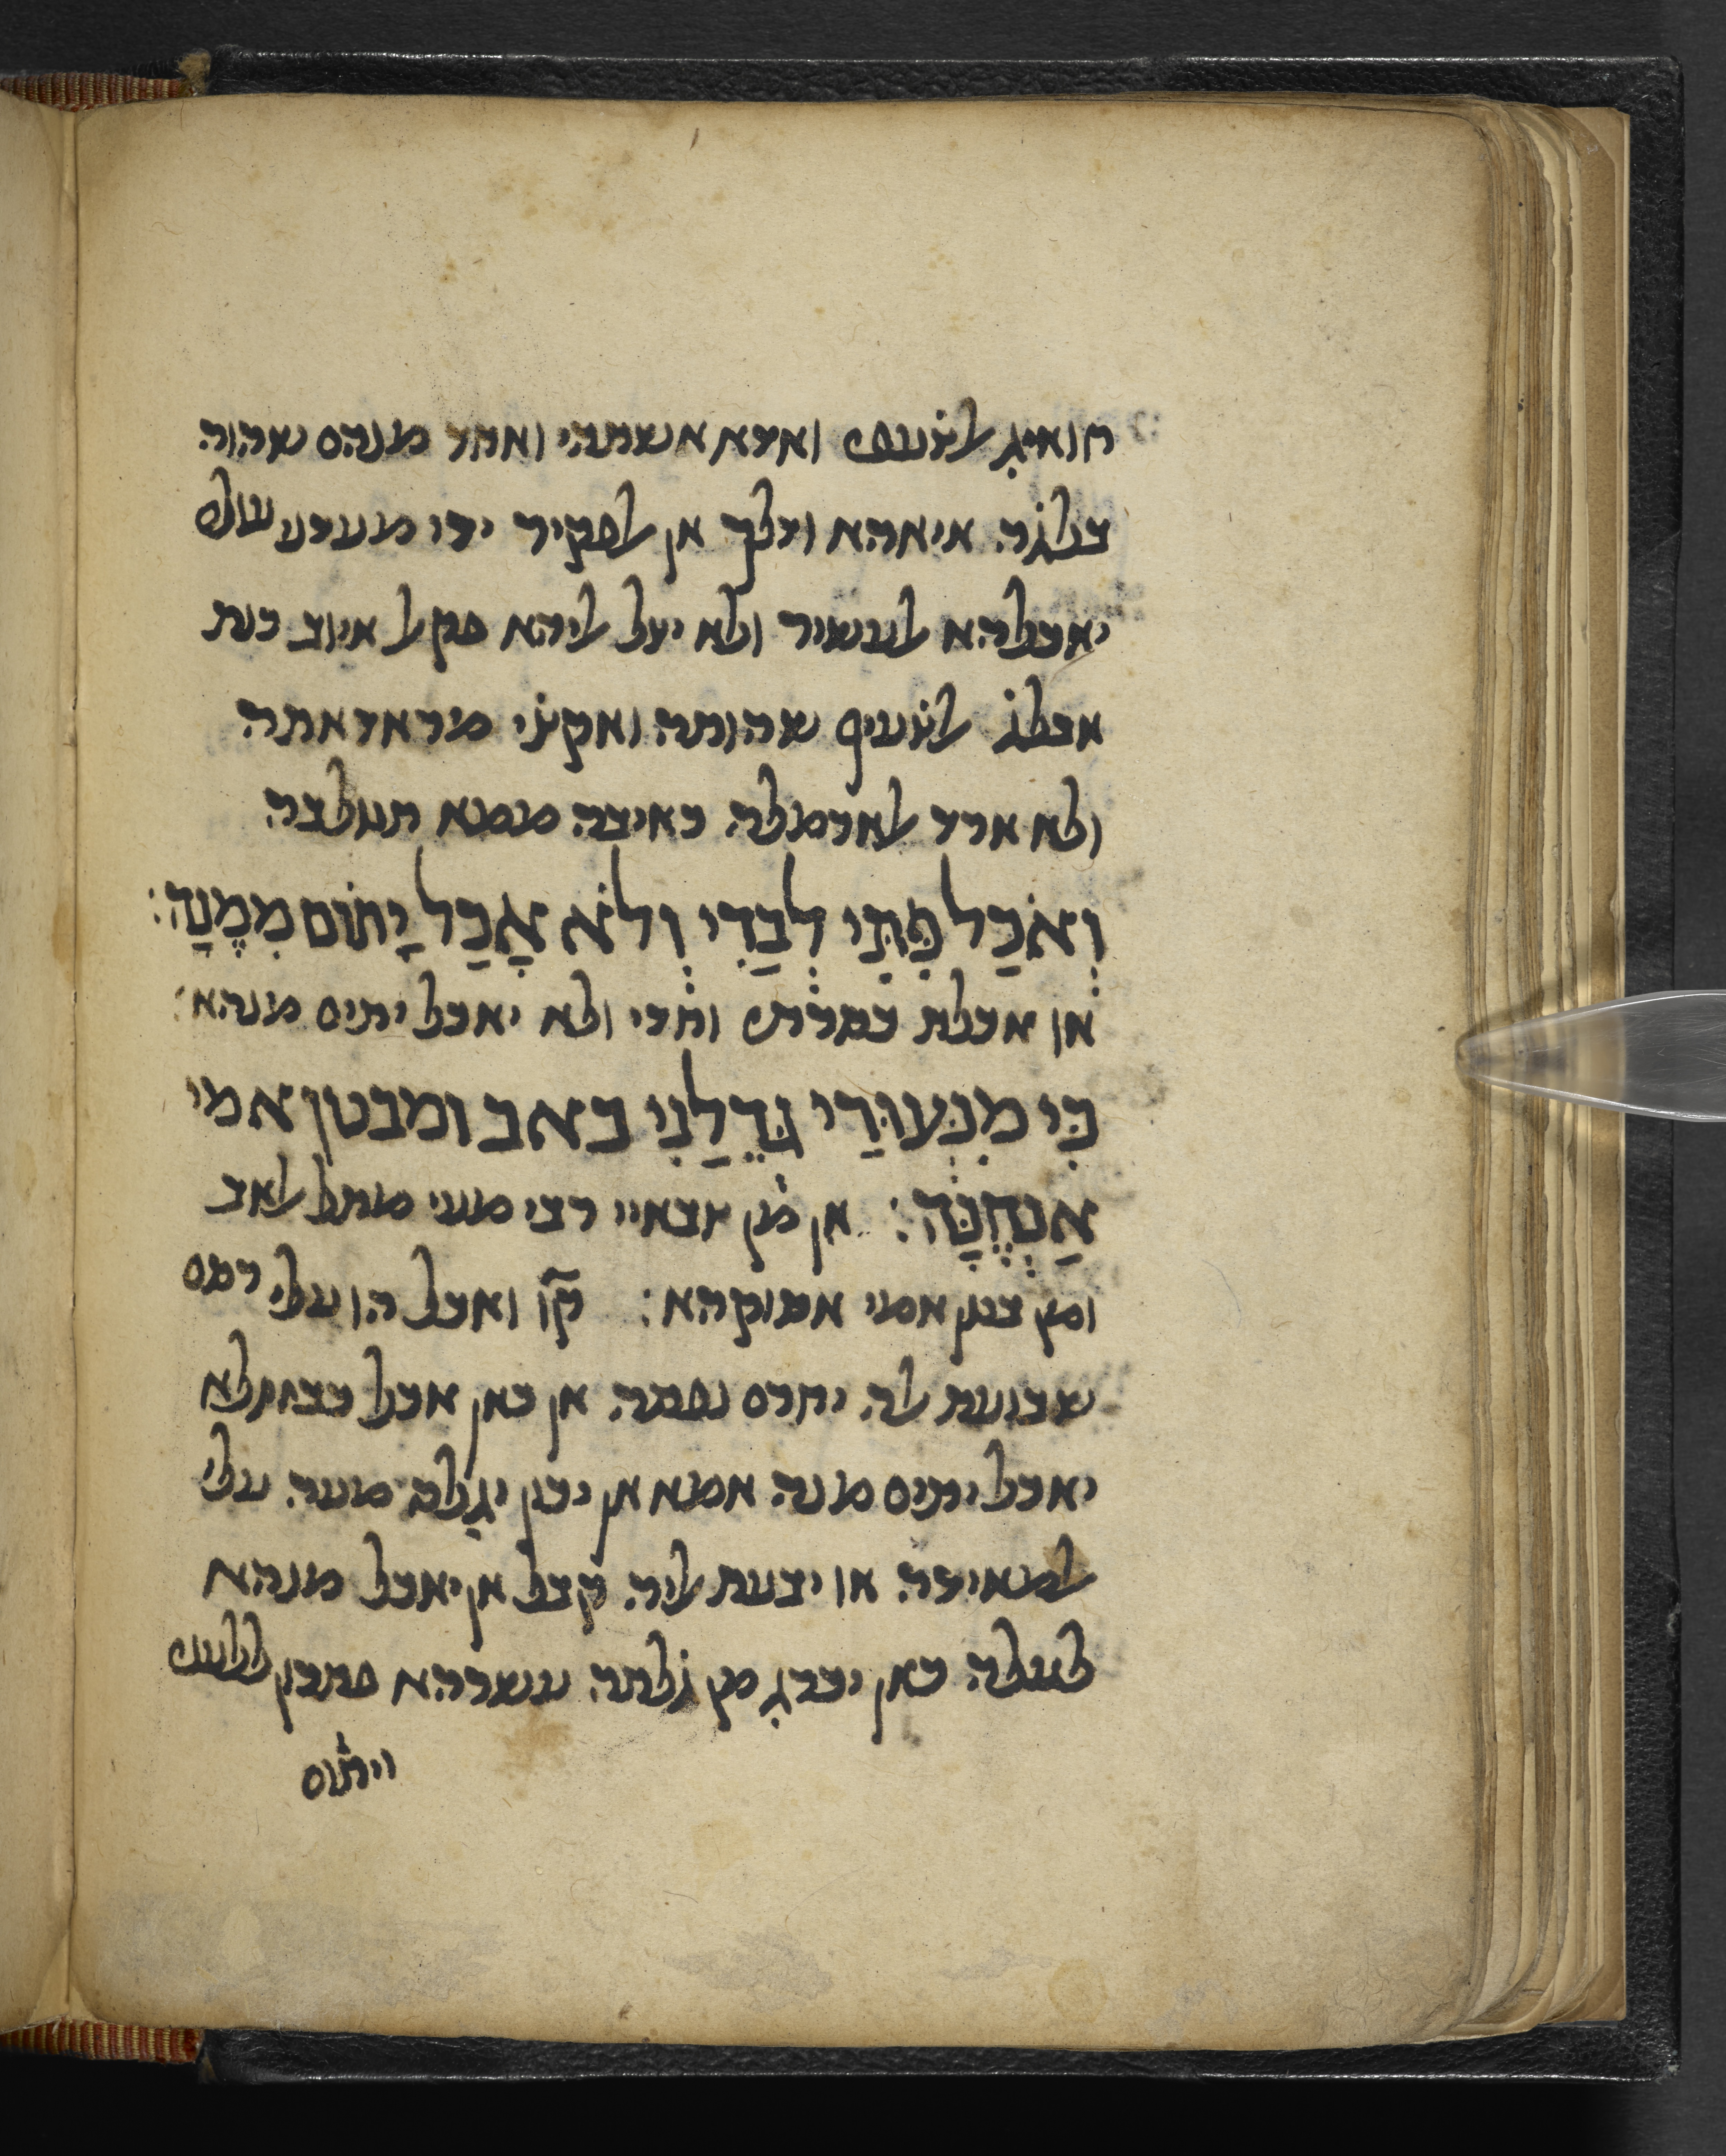 חואיג אלצ̇עפי ואדא אשתהי ואחד מנהם שהוה
בלגה איאהא ודלך אן אלפקיר ירי מעדע שולם
יאכלהא אלעשיר ולא יצל אליהא פקאל איוב כנת
אבלג אלצ̇עיף שהותה ואקצ̇י מראדאתה
ולא ארד אלארמלה כאיבה ממא תטלבה
וְאֹכַל פִּתִּי לְבַדִּי וְלֹא אָכַל יָתוֹם מִמֶּנָּה׃
או אכלת כסרתי וחדי ולא יאכל יתים מנהא׃
כִּי מִנְּעוּרַי גְּדֵלַנִי כאב ומבטן אמי
אַנְחֶנָּה׃ אן מן צבאיי רבי מעי מתל אלאב
ומן בטן אמי אסוקהא׃ קו׳ ואכל הו עלי רסם
שבועת אלה יחרם נפסה אן כאן אכל כבזה ולא
יאכל יתים מנה אמא אן יכון יגלסה מעה עלי
אלמאידה או יבעת אליה קבל אן יאכל מנהא
לעלה כאן יכרג מן גלתה עשרהא פתכון ללצ̇עפי
ויתום